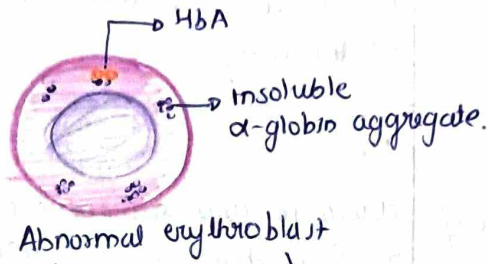 HbA
insoluble
α-globin aggregate.
Abnormal erythroblast